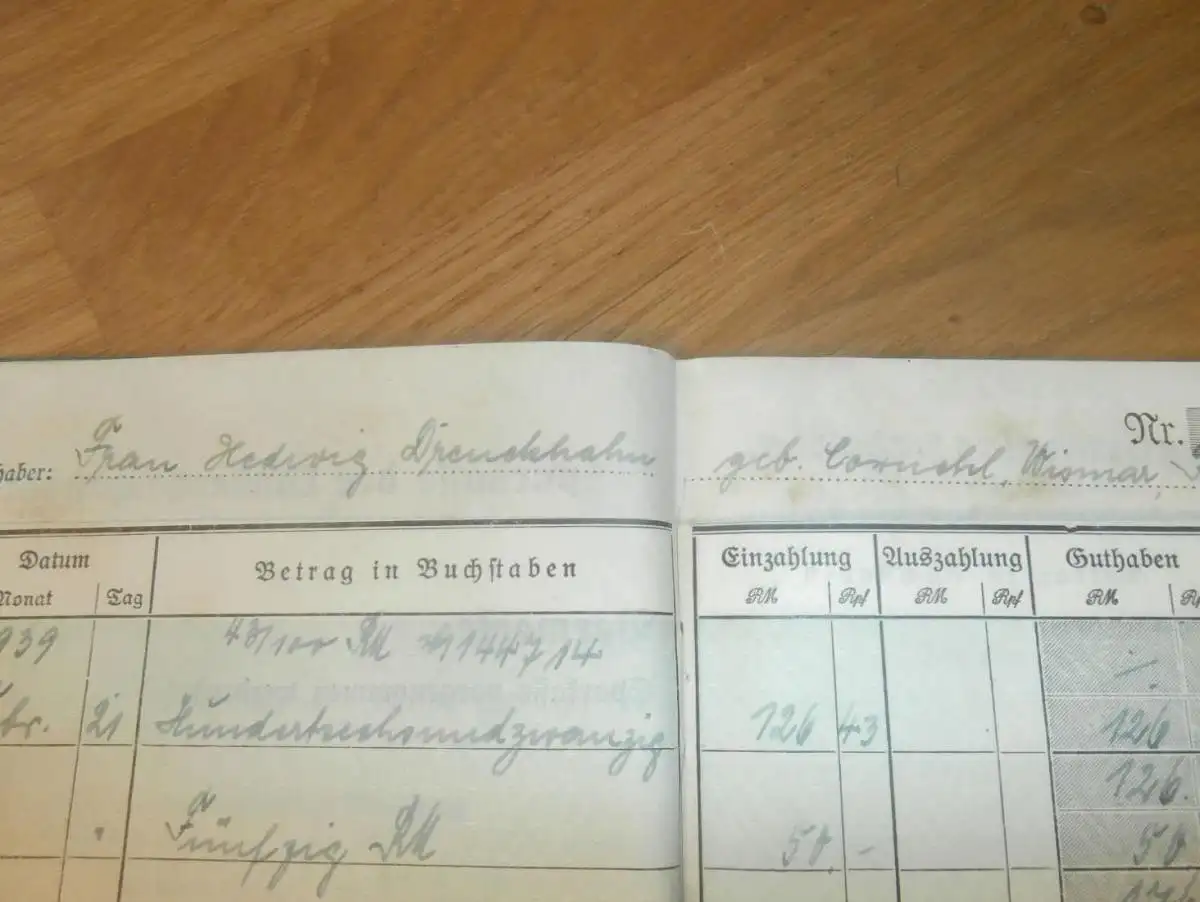 Nr.
haber: Frau Hedwig Drenckhahn geb. Cornehl, Wismar,
Datum Betrag in Buchstaben Einzahlung Auszahlung Guthaben
Monat Tag RM Rpf RM Rpf RM
939 43/100 RM 91447/14 —.
br. 21 Hundertsechsundzwanzig 126 43 126
126.
" Fünfzig RM 50 - 50